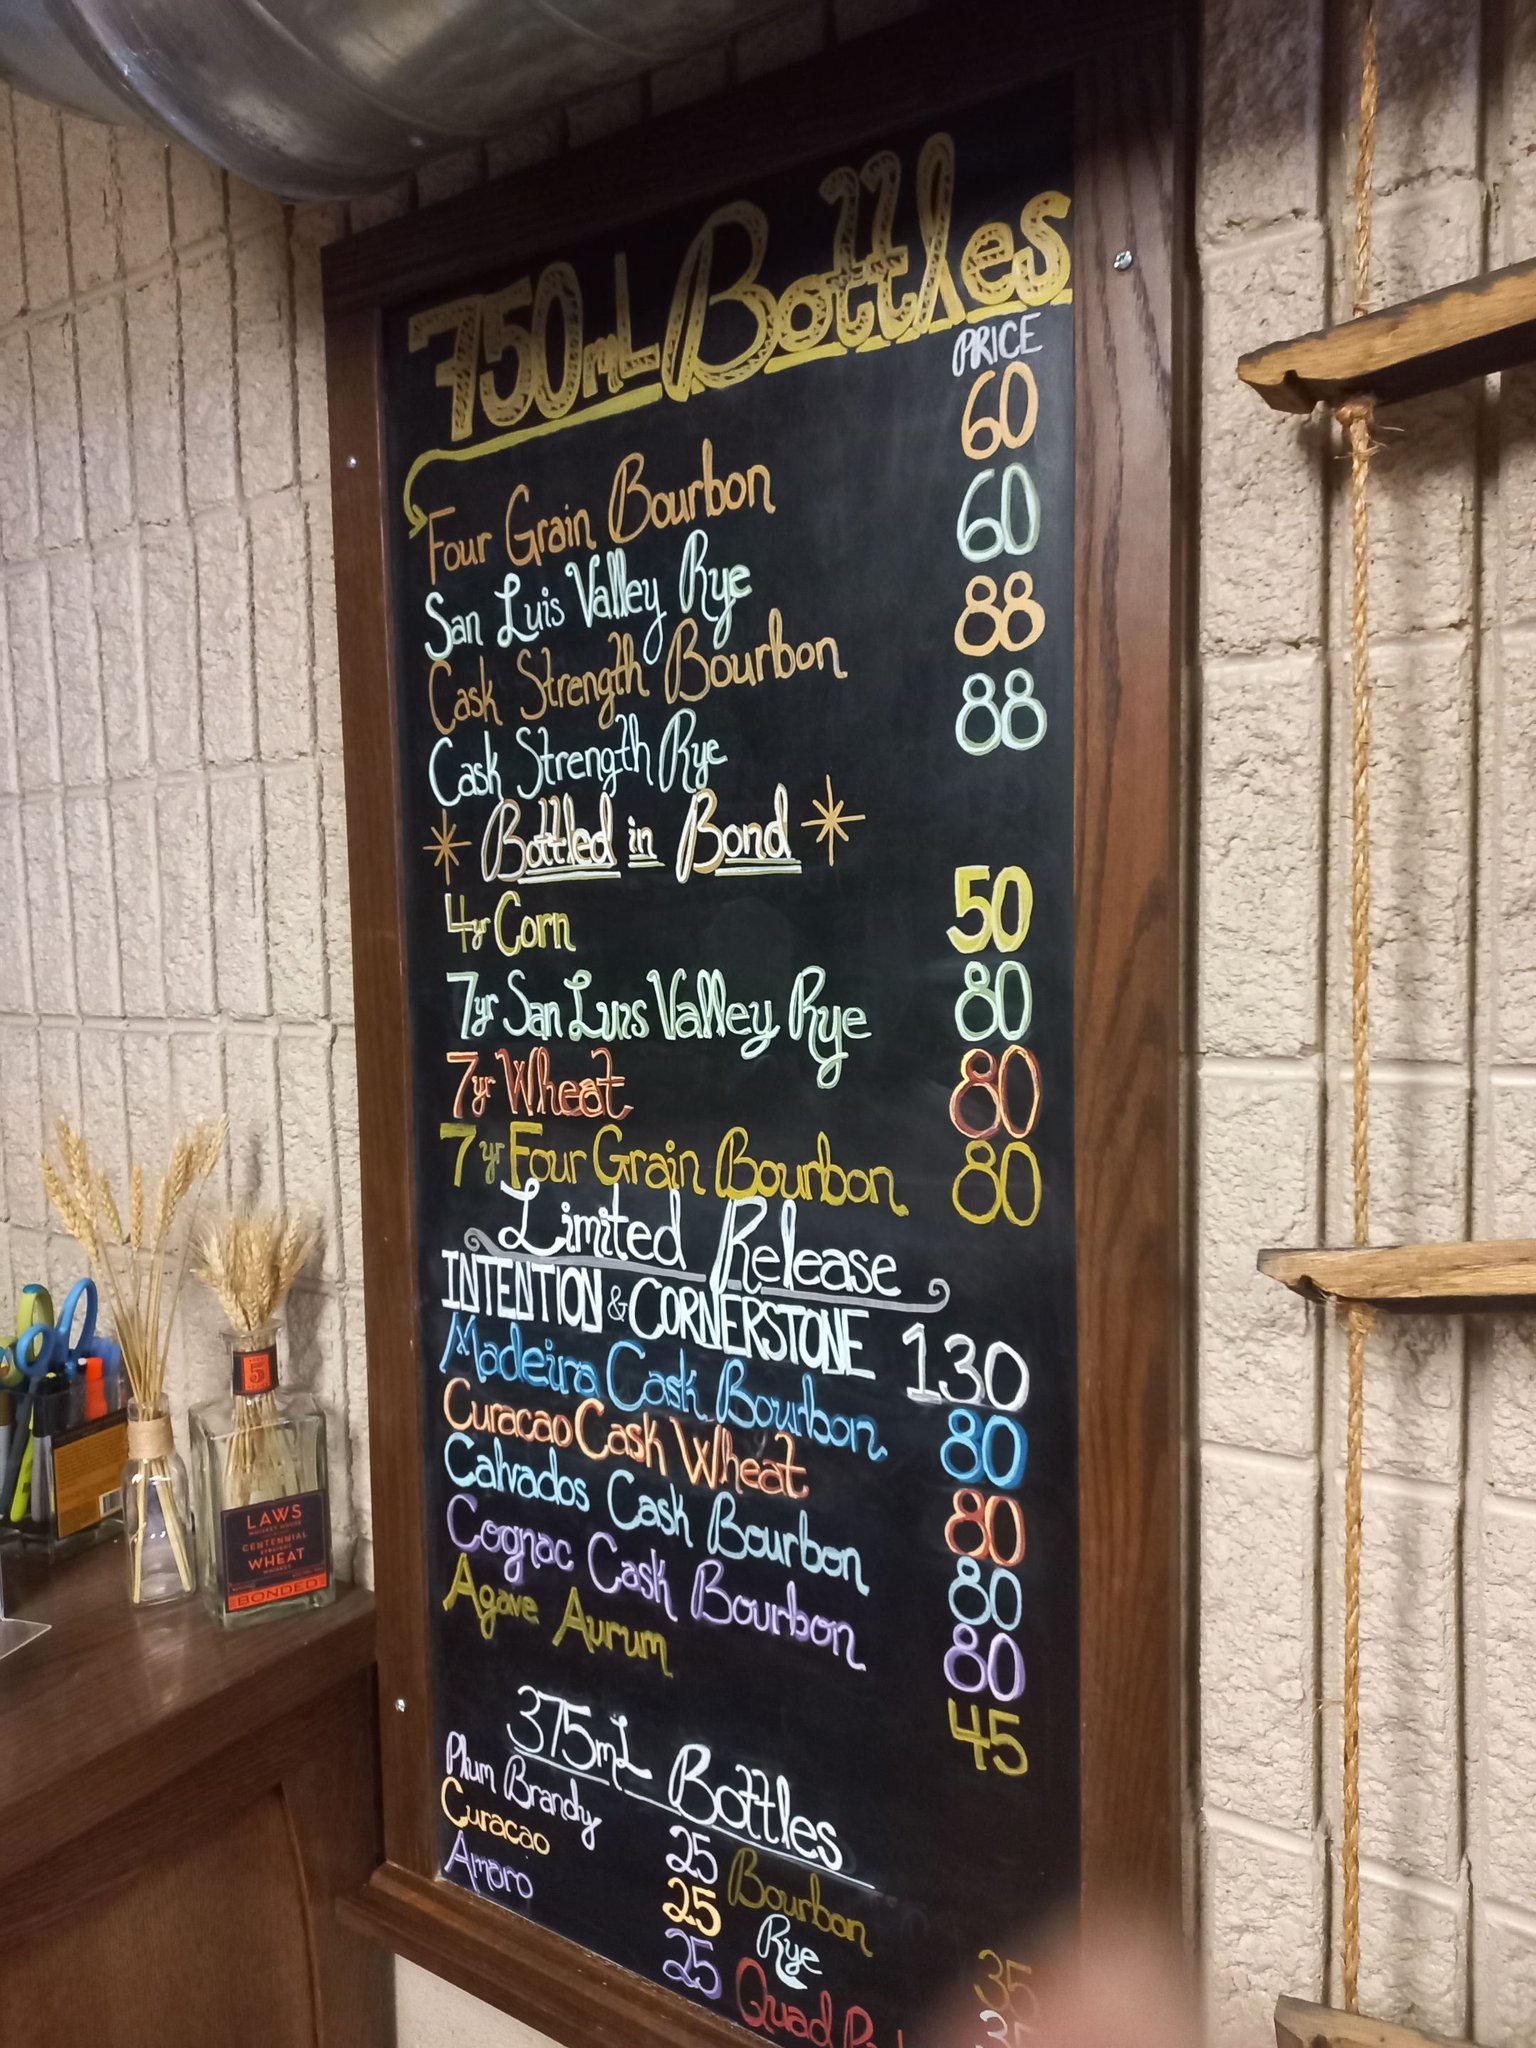 750mL Bottles
PRICE
Four Grain Bourbon 60
San Luis Valley Rye 60
Cask Strength Bourbon 88
Cask Strength Rye 88
Bottled in Bond
4yr Corn 50
7yr San Luis Valley Rye 80
7yr Wheat 80
7yr Four Grain Bourbon 80
Limited Release
INTENTION & CORNERSTONE 130
Madeira Cask Bourbon 80
Curacao Cask Wheat 80
Calvados Cask Bourbon 80
Cognac Cask Bourbon 80
Agave Aurum 45
375mL Bottles
Plum Brandy 25 Bourbon 35
Curacao 25 Rye
Amaro 25 Quad
5
LAWS
WHISKEY HOUSE
CENTENNIAL
STRAIGHT
WHEAT
WHISKEY
BONDED